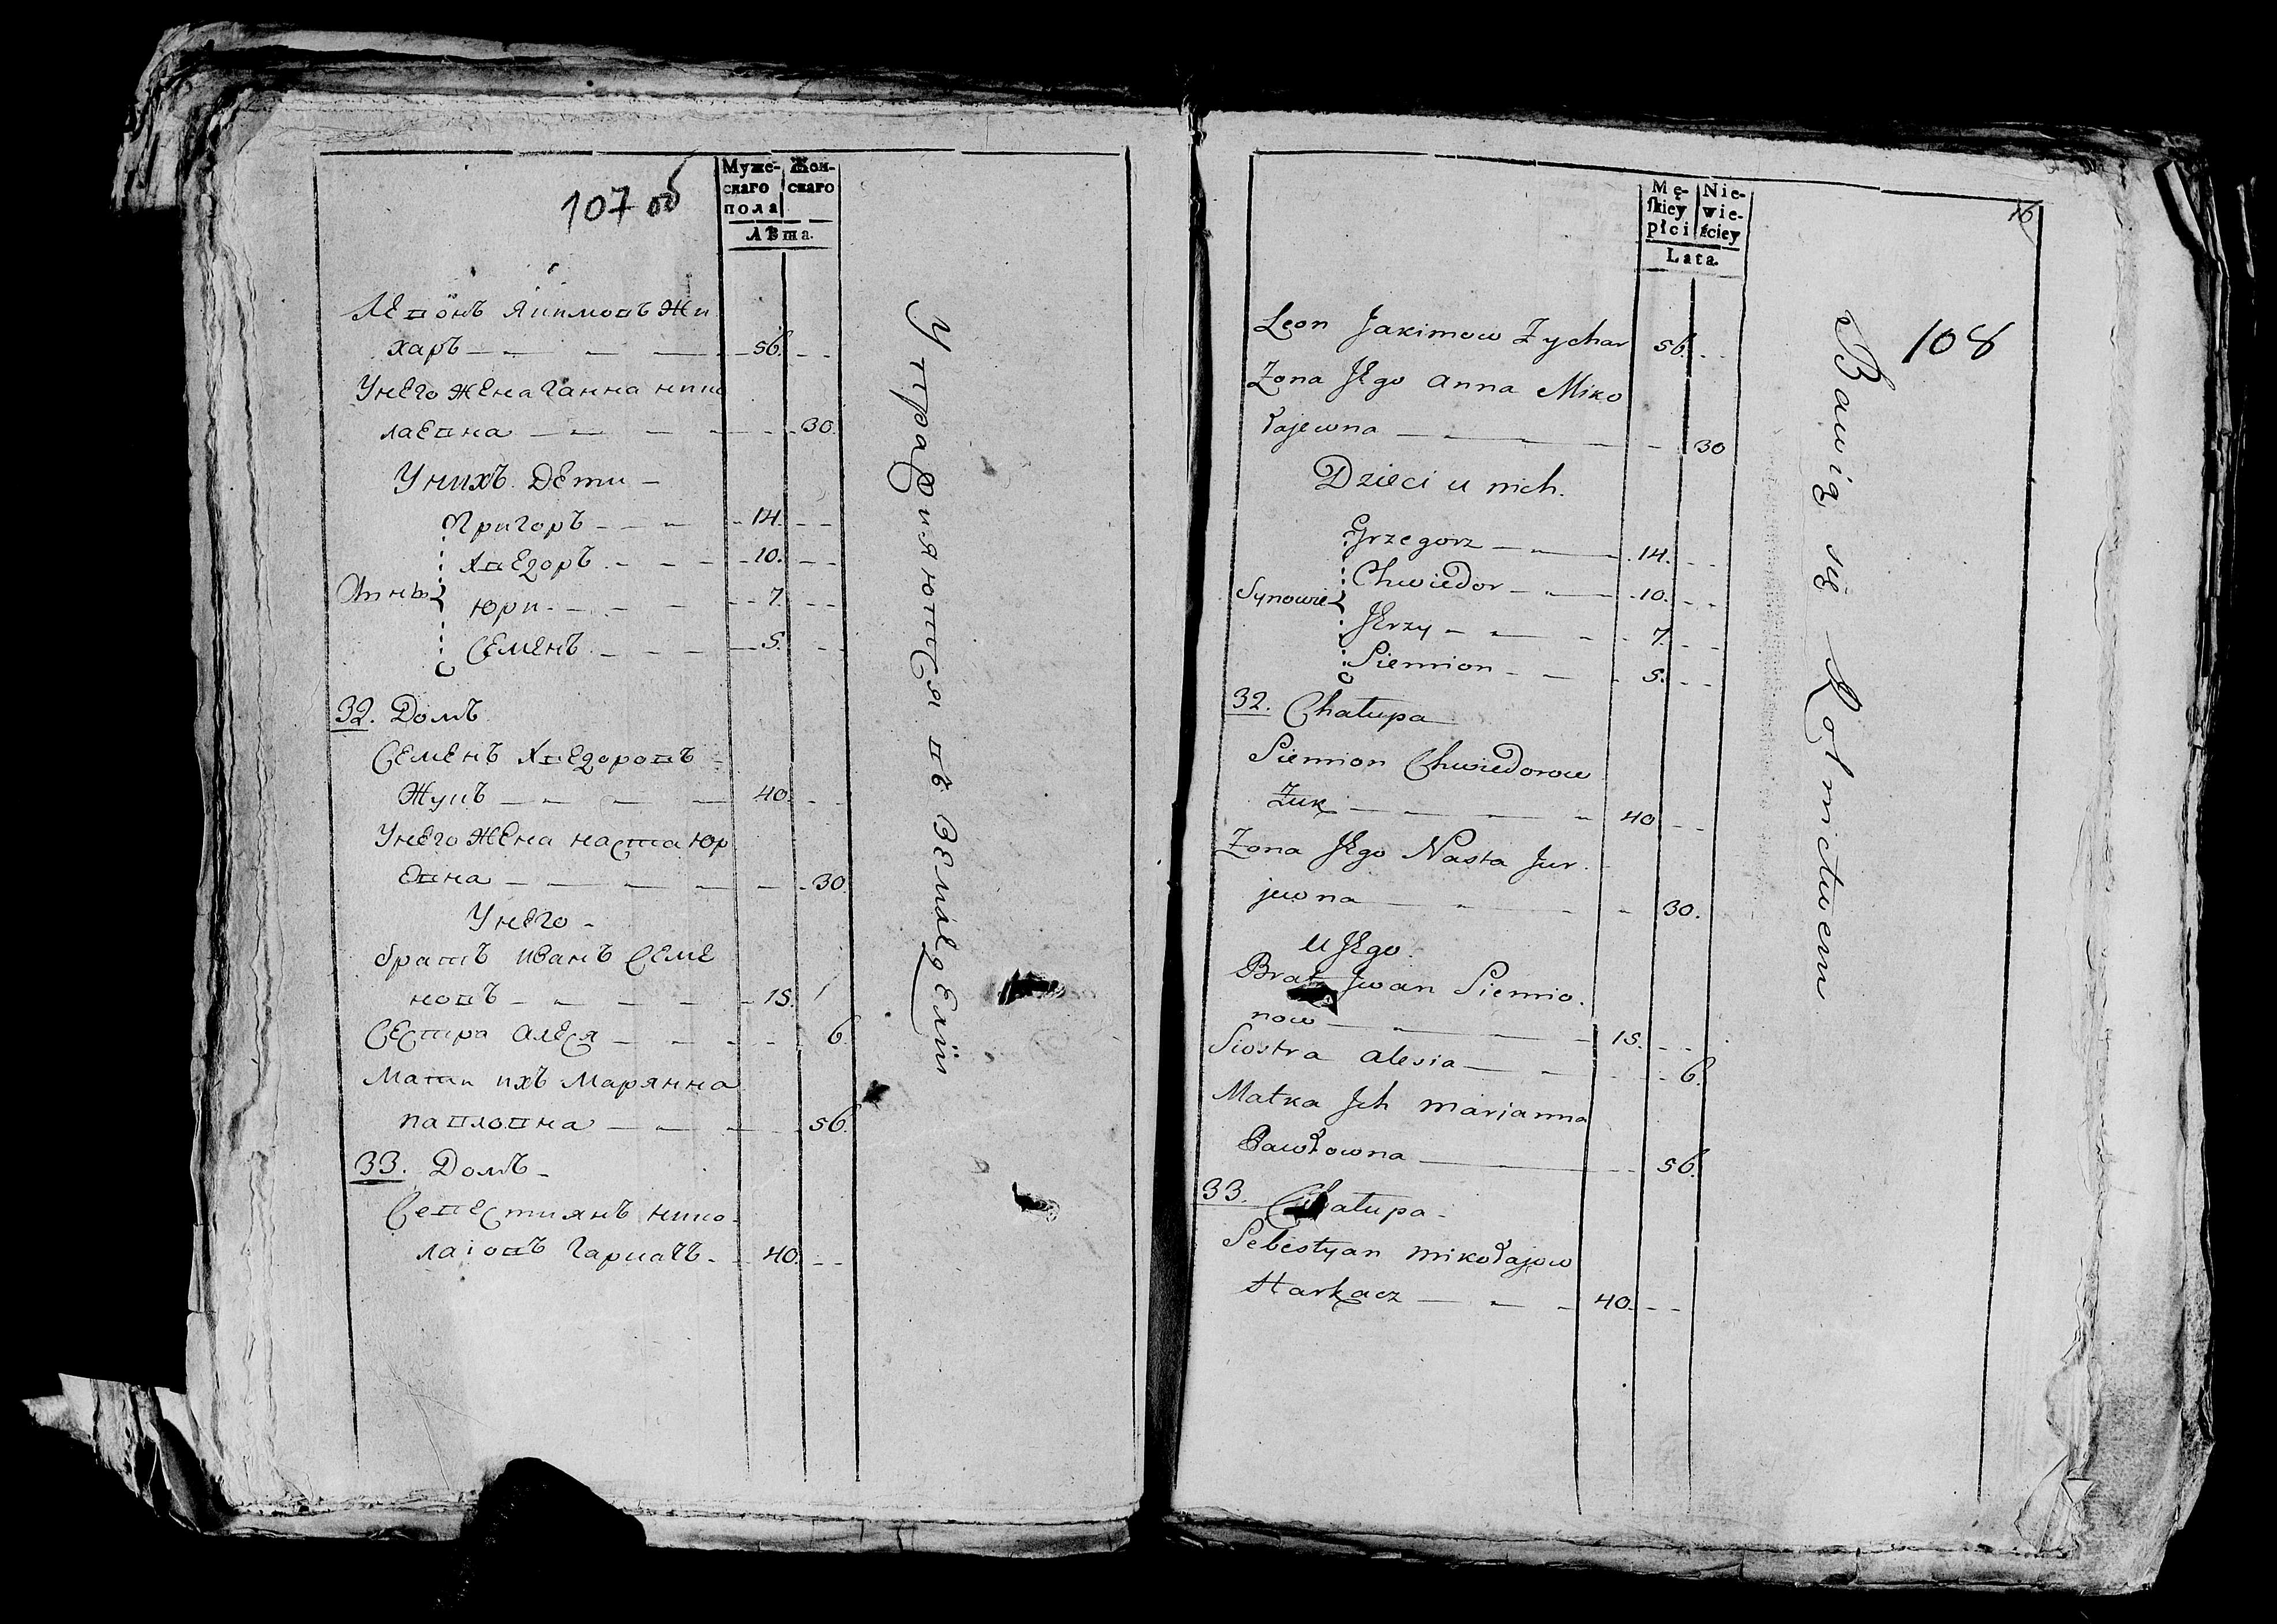 107 об
Муже- Жен-
скаго скаго
пола
Лѣта.
Левонъ Якимовъ Жи
харъ 56.
Унего жена Ганна нико
лаевна 30.
Унихъ дети
Григоръ 14.
Хведоръ 10.
Сыны
Юри 7.
Семенъ 5.
32. Домъ
Семенъ Хведоровъ
Жукъ 40.
Унего жена наста Юр
евна 30.
Унего
братъ иванъ Семе
новъ 15.
Сестра алеся 6.
Мати ихъ Марянна
павловна 56.
33. Домъ
Севестиянъ нико
лаіовъ Гаркачъ 40.
Упражняются въ Земледеліи
Mę- Nie-
skiey wie-
płci ściey
Lata.
16
108
Leon Jakimow Zychar 56.
Zona Jego anna Miko
łajewna 30
Dzieci u nich.
Grzegorz 14.
Chwiedor 10.
Synowie
Jerzy 7.
Siemion 5.
32. Chałupa
Siemion Chwiedorow
Zuk 40
Zona Jego Nasta Jur
jewna 30.
U Jego.
Brat Jwan Siemio
now 15.
Siostra alesia 6.
Matka Jch marjanna
Pawłowna 56.
33. Chałupa
Sebestyan mikołajow
Harkacz 40.
Bawią się Rolnictwem